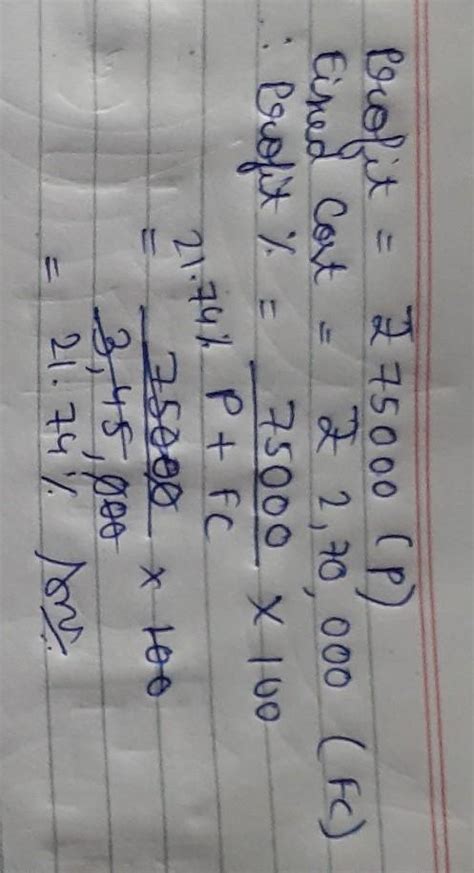 Profit = ₹ 75000 (P)
Fixed Cost = ₹ 2,70,000 (FC)
∴ Profit % = 75000 / P + FC × 100
21.74%
= 75000 / 3,45,000 × 100
= 21.74% Ans.